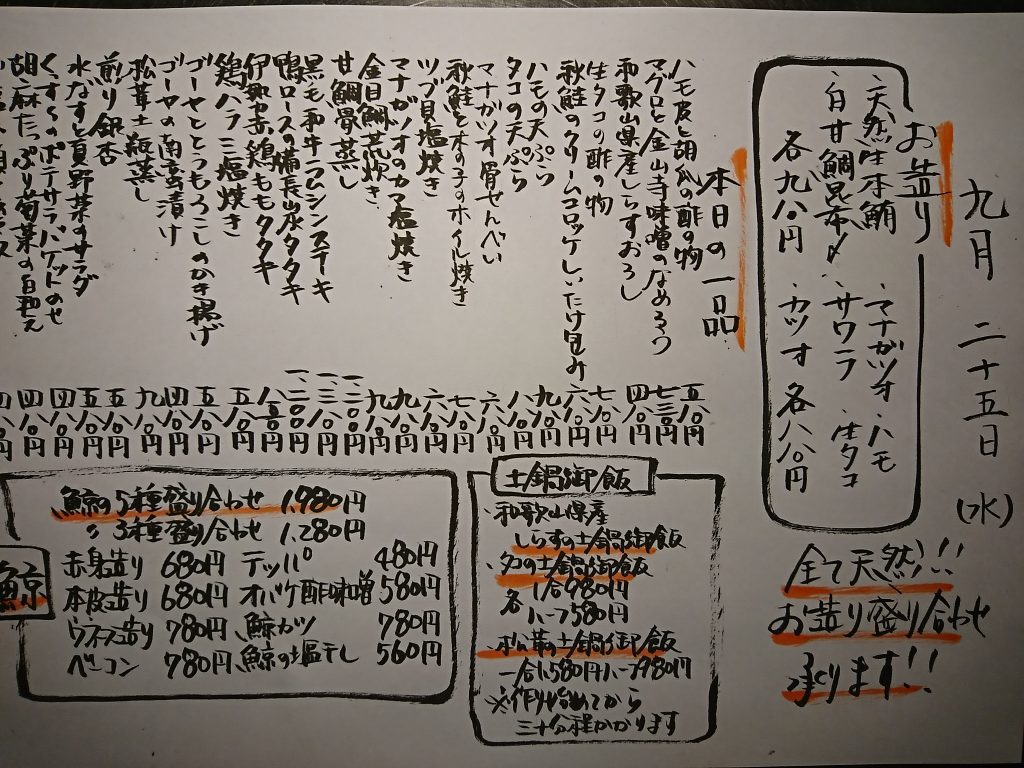 九月 二十五日 (水)
お造り
、天然生本鮪 、マナガツオ 、ハモ
、白甘鯛昆布〆 、サワラ 、生タコ
各九八〇円 、カツオ 各八八〇円
全て天然!!!
お造り盛り合わせ
承ります!!
本日の一品
ハモ皮と胡瓜の酢の物 五八〇円
マグロと金山寺味噌のなめろう 七三〇円
和歌山県産しらすおろし 四八〇円
生タコの酢の物 七八〇円
秋鮭のクリームコロッケしいたけ包み 六八〇円
ハモの天ぷら 九八〇円
タコの天ぷら 八八〇円
マナガツオ骨せんべい 六八〇円
秋鮭と木の子のホイル焼き 七八〇円
ツブ貝塩焼き 六八〇円
マナガツオのカマ塩焼き 九八〇円
金目鯛荒炊き 九八〇円
甘鯛骨蒸し 一、二〇〇円
黒毛和牛ラムシンステーキ 一、三八〇円
鴨ロースの備長炭タタキ 一、二〇〇円
伊勢赤鶏ももタタキ 八八〇円
鶏ハラミ塩焼き 五八〇円
ゴーヤととうもろこしのかき揚げ 五八〇円
ゴーヤの南蛮漬け 四八〇円
松茸土瓶蒸し 九八〇円
煎り銀杏 五八〇円
水なすと夏野菜のサラダ 五八〇円
くずしのポテサラバケットのせ 四八〇円
胡麻たっぷり菊菜の白和え 四八〇円
土鍋御飯
、和歌山県産
しらすの土鍋御飯
、タコの土鍋御飯
各 1合980円
ハーフ580円
、松茸の土鍋御飯
一合1,580円ハーフ980円
※作り始めてから
三十分程かかります
鯨
、鯨の5種盛り合わせ 1,980円
〃 3種盛り合わせ 1,280円
赤身造り 680円 テッパ 480円
本皮造り 680円 オバケ酢味噌 580円
ウネス造り 780円 鯨カツ 780円
ベーコン 780円 鯨の塩干し 560円